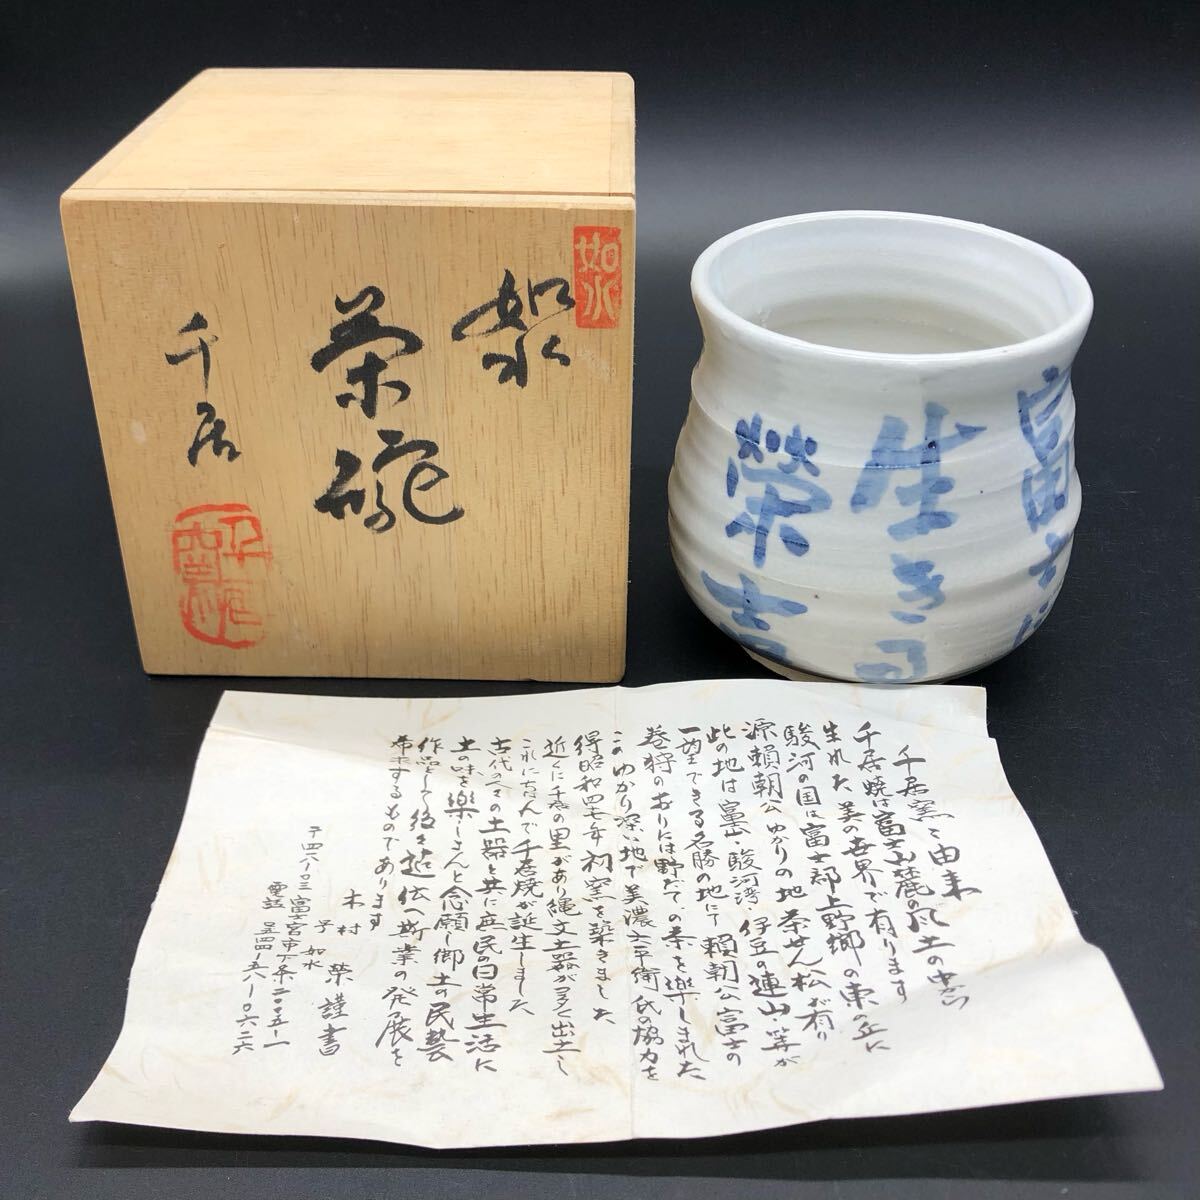 如水
茶碗
千居
如水
富士
生き
榮
千居窯之由来
千居焼は富士山麓の風土の中から
生れた美の世界で有ります
駿河の国は富士郡上野郷の東の丘に
源頼朝公ゆかりの地茶せん松が有り
此の地は富士山・駿河湾・伊豆の連山・等が
一望できる名勝の地にて頼朝公富士の
巻狩のおりには野だての茶を楽しまれた
このゆかり深い地で美濃
得昭和四七年初窯を築きました
近くに千居の里があり縄文土器が多く出土し
これにちなんで千居焼が誕生しました
古代の人々の土器と共に庶民の日常生活に
土の味を樂しまんと念願し郷土の民藝
作品として後々迄伝へ斯業の発展を
希求するものであります
木村 榮謹書
子如水
〒四一八-〇三 富士宮市下条二〇五-一
電話 五四四-五八-〇六二六